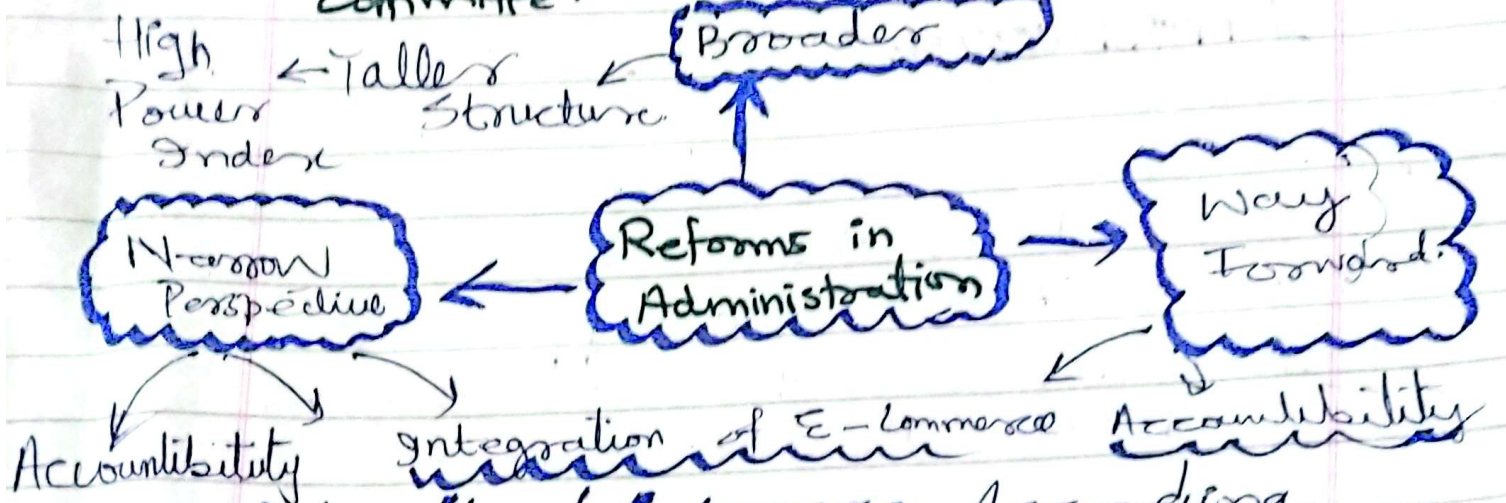 High
Power
Index
Taller
Structure
Broader
Narrow
Perspective
Reforms in
Administration
Way
Forward.
Accountibitity
Integration of E-Commerce
Accountibility